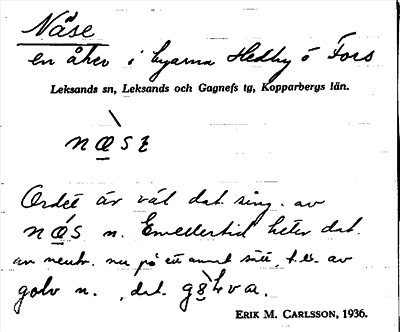 Näse
en åker i byarna Hedby o Fors
Leksands sn, Leksands och Gagnefs tg, Kopparbergs län.
Ordet är väl dat. sing. av
n. Emellertid heter dat.
av neutr. nu på ett annat sätt, t. ex. av
golv n. , dat.
ERIK M. CARLSSON, 1936.